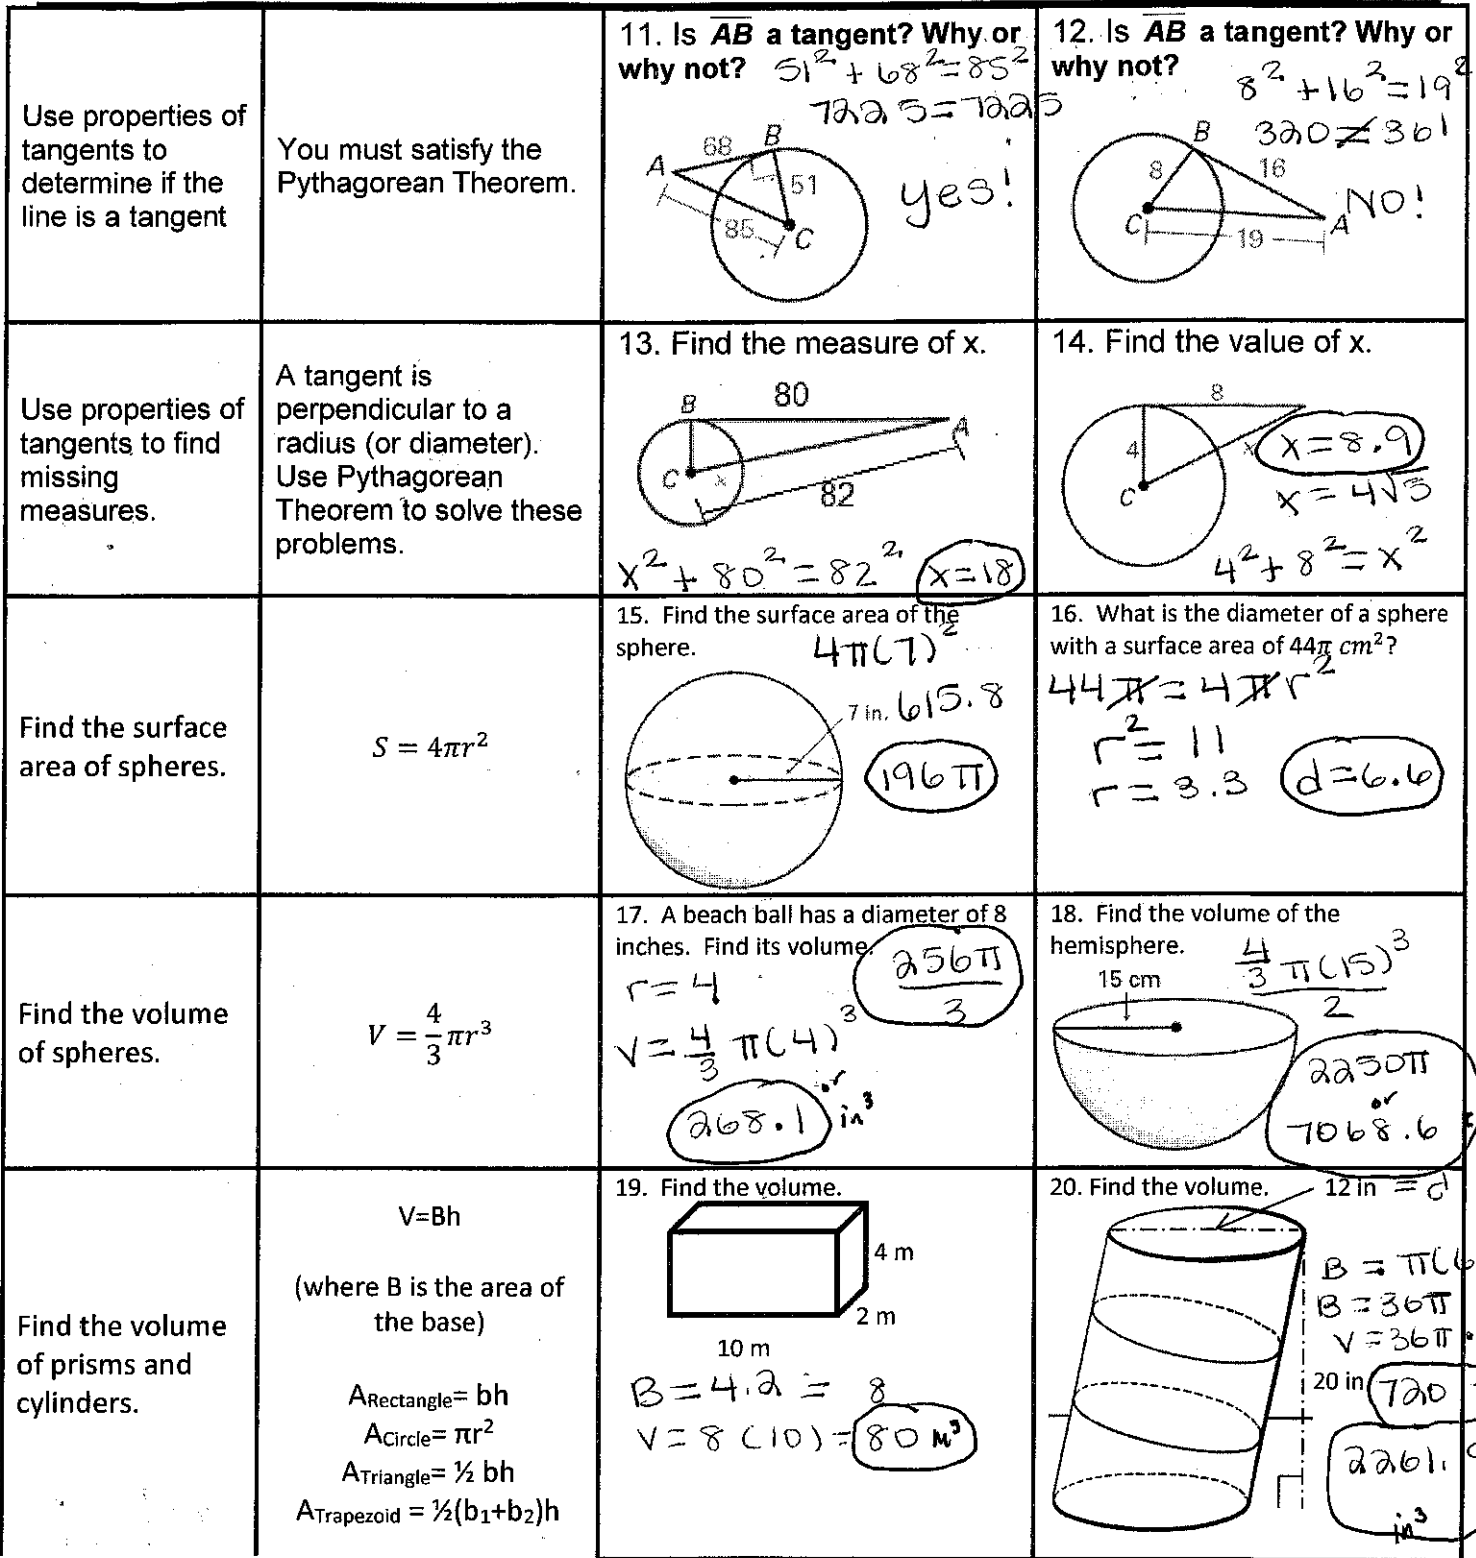 Use properties of
tangents to
determine if the
line is a tangent
You must satisfy the
Pythagorean Theorem.
11. Is AB a tangent? Why or
why not? 51² + 68² = 85²
7225 = 7225
A
68
B
51
85
C
yes!
12. Is AB a tangent? Why or
why not?
8² + 16² = 19²
320 ≠ 361
B
8
16
C
A
19
NO!
Use properties of
tangents to find
missing
measures.
A tangent is
perpendicular to a
radius (or diameter).
Use Pythagorean
Theorem to solve these
problems.
13. Find the measure of x.
B
80
A
C
x
82
x² + 80² = 82² x=18
14. Find the value of x.
8
4
x
C
x = 8.9
x = 4√5
4² + 8² = x²
Find the surface
area of spheres.
S = 4πr²
15. Find the surface area of the
sphere. 4π(7)²
7 in. 615.8
196π
16. What is the diameter of a sphere
with a surface area of 44π cm²?
44π = 4πr²
r² = 11
r = 3.3 d=6.6
Find the volume
of spheres.
V = 4/3 πr³
17. A beach ball has a diameter of 8
inches. Find its volume.
256π/3
r = 4
V = 4/3 π(4)³
or
268.1 in³
18. Find the volume of the
hemisphere.
4/3 π(15)³
2
15 cm
2250π
or
7068.6
Find the volume
of prisms and
cylinders.
V=Bh
(where B is the area of
the base)
ARectangle= bh
ACircle= πr²
ATriangle= ½ bh
ATrapezoid = ½(b₁+b₂)h
19. Find the volume.
4 m
2 m
10 m
B = 4.2 = 8
V = 8 (10) = 80 m³
20. Find the volume.
12 in = d
B = π(6
B = 36π
V = 36π ·
20 in 720
2261.
in³